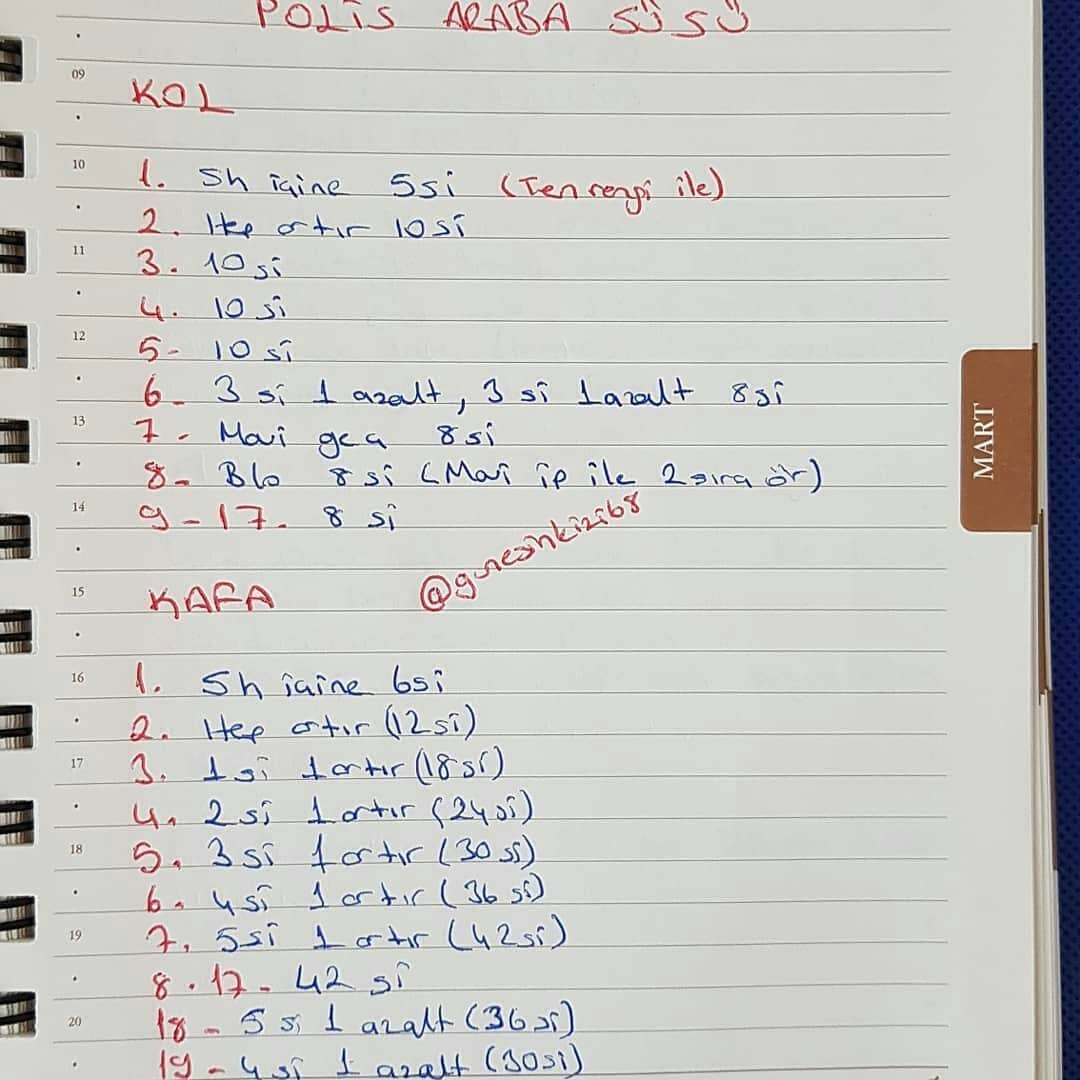 POLİS ARABA SÜSÜ
09
KOL
10
1. Sh içine 5si (Ten rengi ile)
2. Hep artır 10si
11
3. 10 si
4. 10 si
12
5- 10 si
6- 3 si 1 azalt, 3 si 1 azalt 8si
13
7- Mavi geç 8si
8- Blo 8 si (Mavi ip ile 2 sıra ör)
14
9-17. 8 si
@guneshkizi68
15
KAFA
16
1. Sh içine 6si
2. Hep artır (12 si)
17
3. 1 si 1 artır (18 si)
4. 2 si 1 artır (24 si)
18
5. 3 si 1 artır (30 si)
6. 4 si 1 artır (36 si)
19
7. 5 si 1 artır (42 si)
8.17- 42 si
20
18- 5 si 1 azalt (36 si)
19- 4 si 1 azalt (30 si)
MART